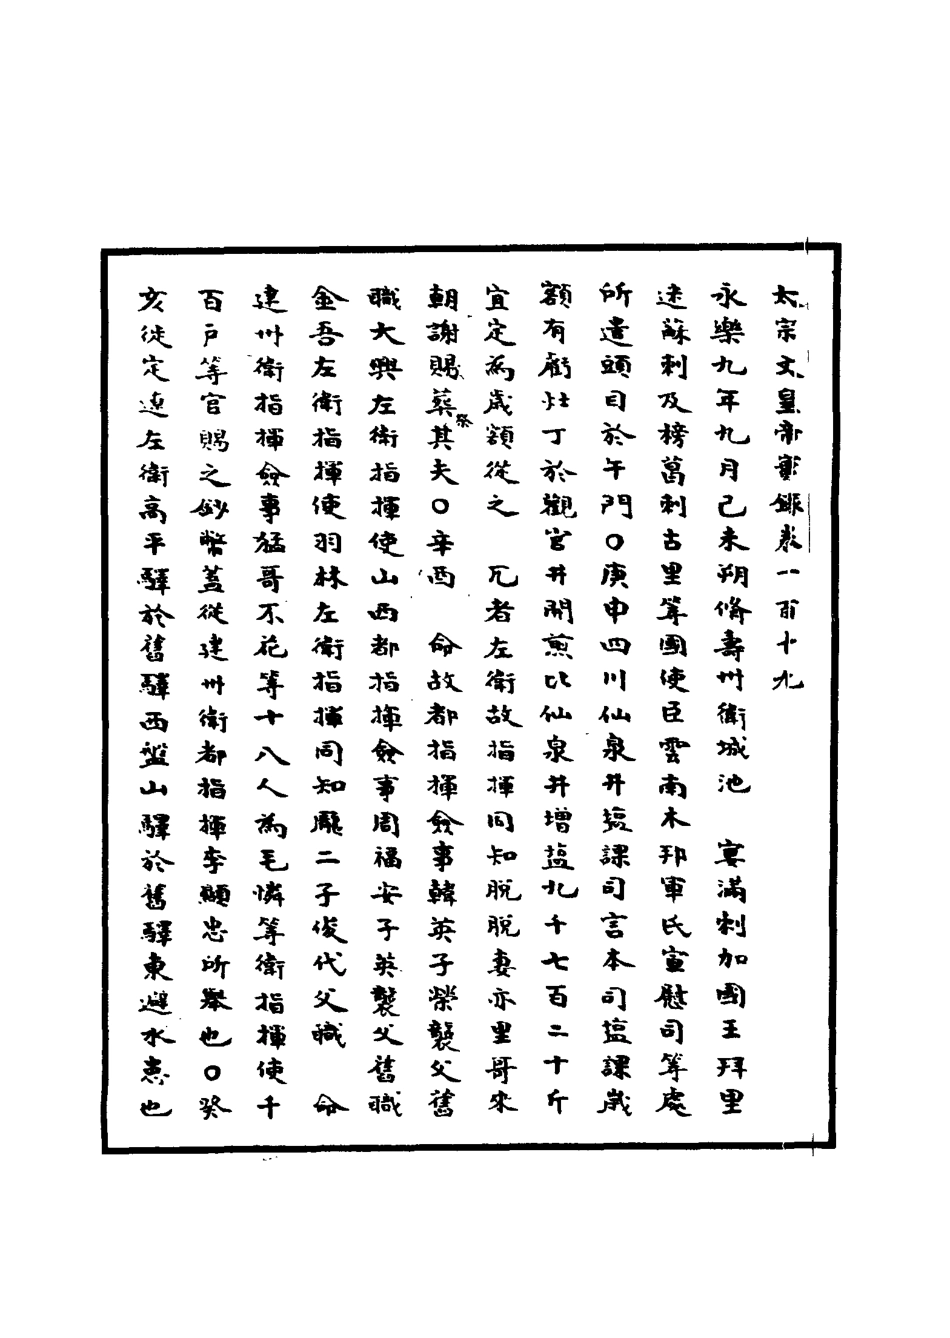 太宗文皇帝實錄卷一百十九
永樂九年九月己未朔脩壽州衛城池　宴滿剌加國王拜里
迷蘇剌及榜葛剌古里等國使臣雲南木邦軍民宣慰司等處
所遣頭目於午門○庚申四川仙泉井塩課司言本司塩課歲
額有虧灶丁於觀音井開煎比仙泉井增塩九千七百二十斤
宜定為歲額從之　兀者左衛故指揮同知脫脫妻亦里哥來
朝謝賜葬祭其夫○辛酉　命故都指揮僉事韓英子榮襲父舊
職大興左衛指揮使山西都指揮僉事周福安子英襲父舊職
金吾左衛指揮使羽林左衛指揮同知龐二子俊代父職　命
建州衛指揮僉事猛哥不花等十八人為毛憐等衛指揮使千
百戶等官賜之鈔幣蓋從建州衛都指揮李顯忠所舉也○癸
亥徙定遼左衛高平驛於舊驛西盤山驛於舊驛東避水患也